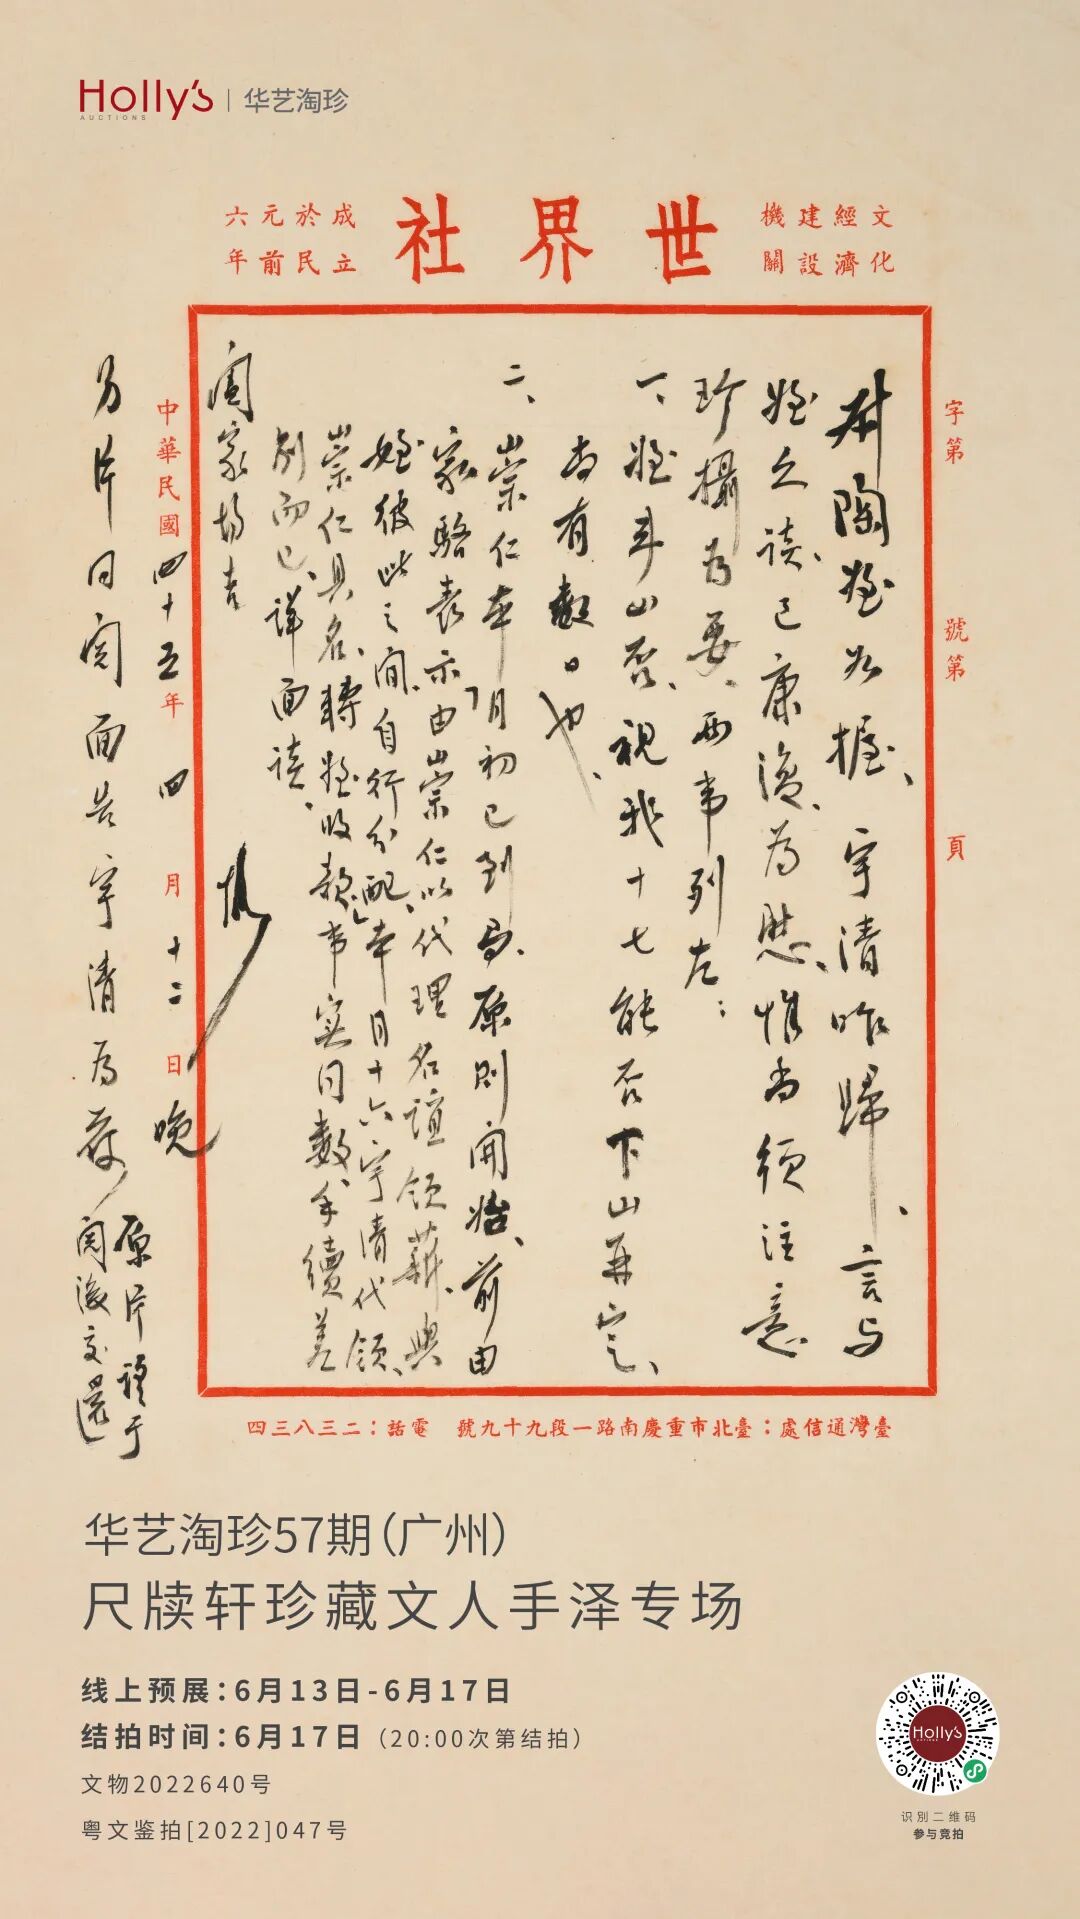 Holly's
AUCTIONS
华艺淘珍
文化經濟建設機關
世界社
成立於民元前六年
字第　號第　頁
陶姪如握、宇清昨歸、言与
姪之談、已康復、為慰、惟尚須注意
珍攝為要、兩事列左：
一、姪牙山否、視我十七能否下山再定、
尚有數日也、
二、崇仁本月初已到局、原則開始、前由
家駱表示由崇仁以代理名誼領薪、與
姪彼此之間、自行分配、本月十六宇清代領、
崇仁具名、轉姪收款、事实同、數手續差
別而已、詳面談、
闔家均吉
中華民國四十五年四月十二日晚
另片同閱面告宇清為荷
原片望于
閱後交還
臺灣通信處：臺北市重慶南路一段九十九號　電話：二三八三四
华艺淘珍57期（广州）
尺牍轩珍藏文人手泽专场
线上预展：6月13日-6月17日
结拍时间：6月17日（20:00次第结拍）
文物2022640号
粤文鉴拍[2022]047号
Holly's
识别二维码
参与竞拍